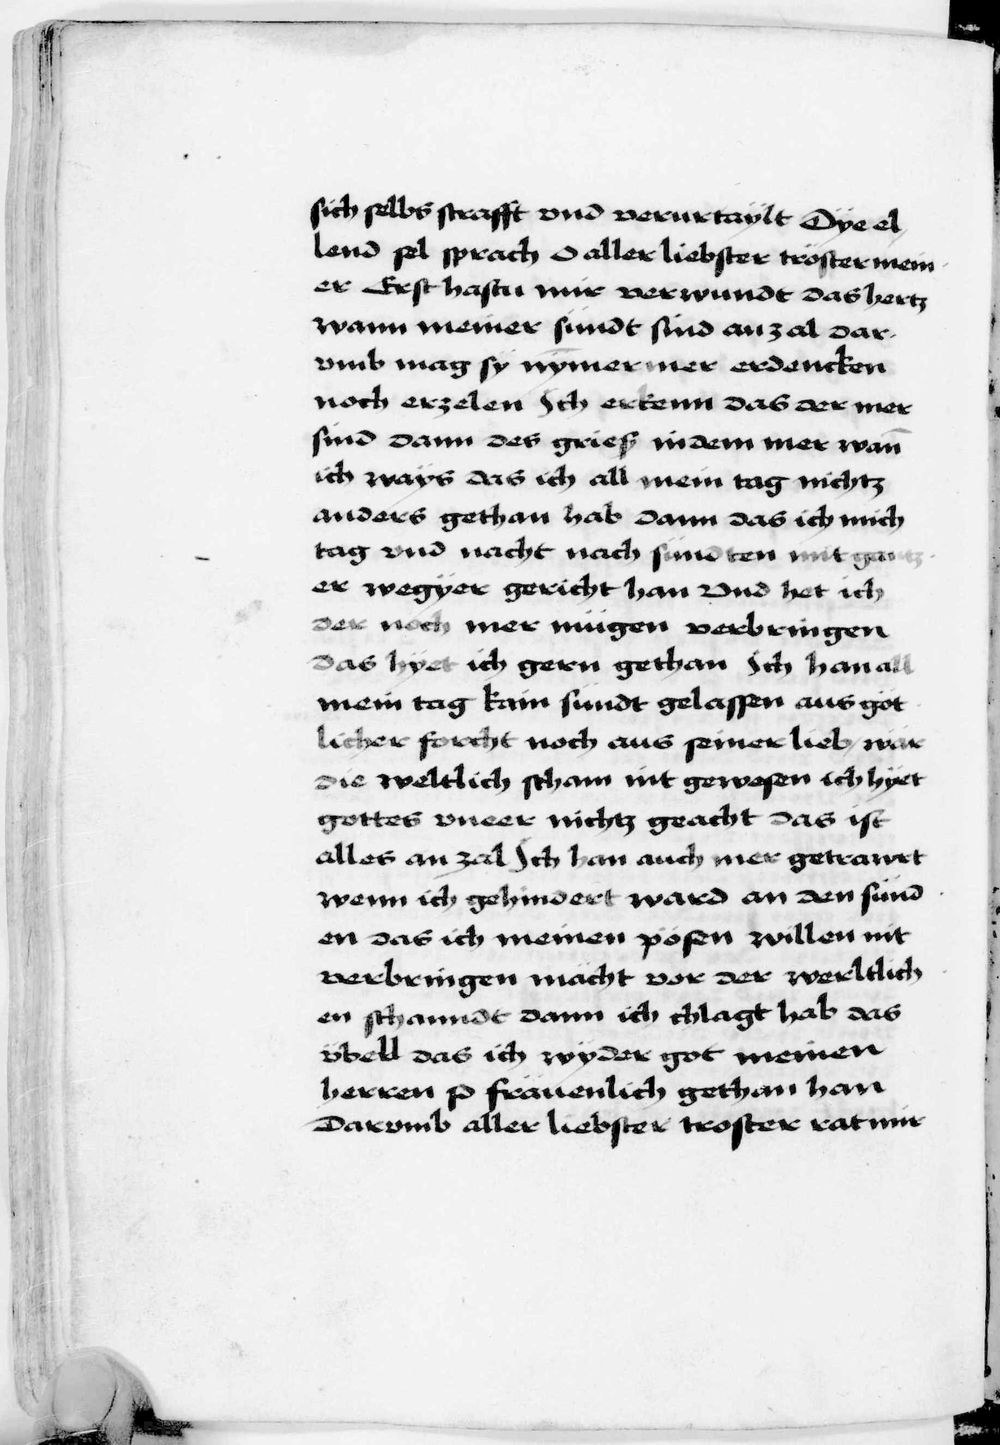 sich selbs strafft vnd verurtaylt Dÿe el
lend sel sprach O aller liebster tröster mein
er Erst hastu mir verwundt das hertz
wann meiner sündt sind an zal dar
vmb mag sÿ nȳmermer erdencken
noch erzelen Ich erkenn das der mer
sind dann des gries in dem mer wan̄
ich waÿs das ich all mein tag nichtz
anders gethan hab dann das ich mich
tag vnd nacht nach sündten mit gantz
er wegÿer gericht han Vnd het ich
der noch mer mügen verbringen
das hÿet ich gern gethan Ich han all
mein tag kain sündt gelassen aus göt
licher forcht noch aus seiner lieb / wär
die weltlich scham nit gewesen ich hÿet
gottes vneer nichtz geacht das ist
alles an zal Ich han auch mer getrawrt
wenn ich gehindert ward an den sünd
en das ich meinen pösen willen nit
verbringen mächt vor der werltlich
en schanndt dann ich chlagt hab das
vbell das ich wÿder got meinen
herren so fräuenlich gethan han
Darvmb aller liebster troster rat mir